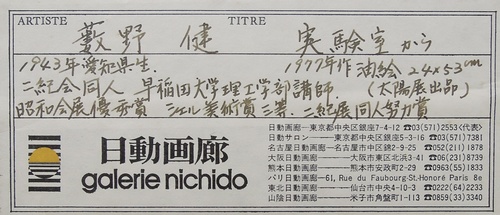 ARTISTE TITRE
藪野 健 実験室から
1943年愛知県生. 1977年作 油絵 24×53cm
二紀会同人 早稲田大学理工学部講師. (太陽展出品)
昭和会展優秀賞 シェル美術賞三等. 二紀展同人努力賞
日動画廊
galerie nichido
日動画廊―東京都中央区銀座7-4-12 ☎03(571)2553<代表>
日動サロン―東京都中央区銀座5-3-16 ☎03(571)7381
名古屋日動画廊―名古屋市中区錦2-9-25 ☎052(211)1878
大阪日動画廊―大阪市東区北浜3-41 ☎06(231)8739
熊本日動画廊―熊本市安政町2-29 ☎0963(55)1833
パリ日動画廊―61, Rue du Faubourg St.Honoré Paris 8e
東北日動画廊―仙台市中央4-10-3 ☎0222(64)2233
山陰日動画廊―米子市角盤町1-113 ☎0859(33)3340